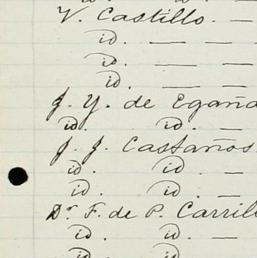 V. Castillo. —
id. — —
id. — —
id. — —
J. Y. de Egaña
id. id. —
J. J. Castaños
id. id —
id. id. —
Dr F. de P. Carril
id. id. —
id. id